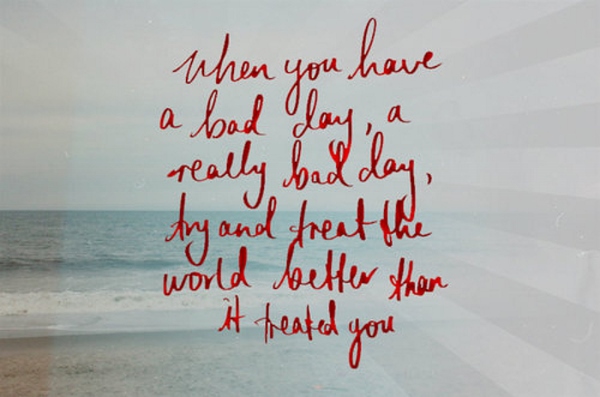 When you have
a bad day, a
really bad day,
try and treat the
world better than
it treated you